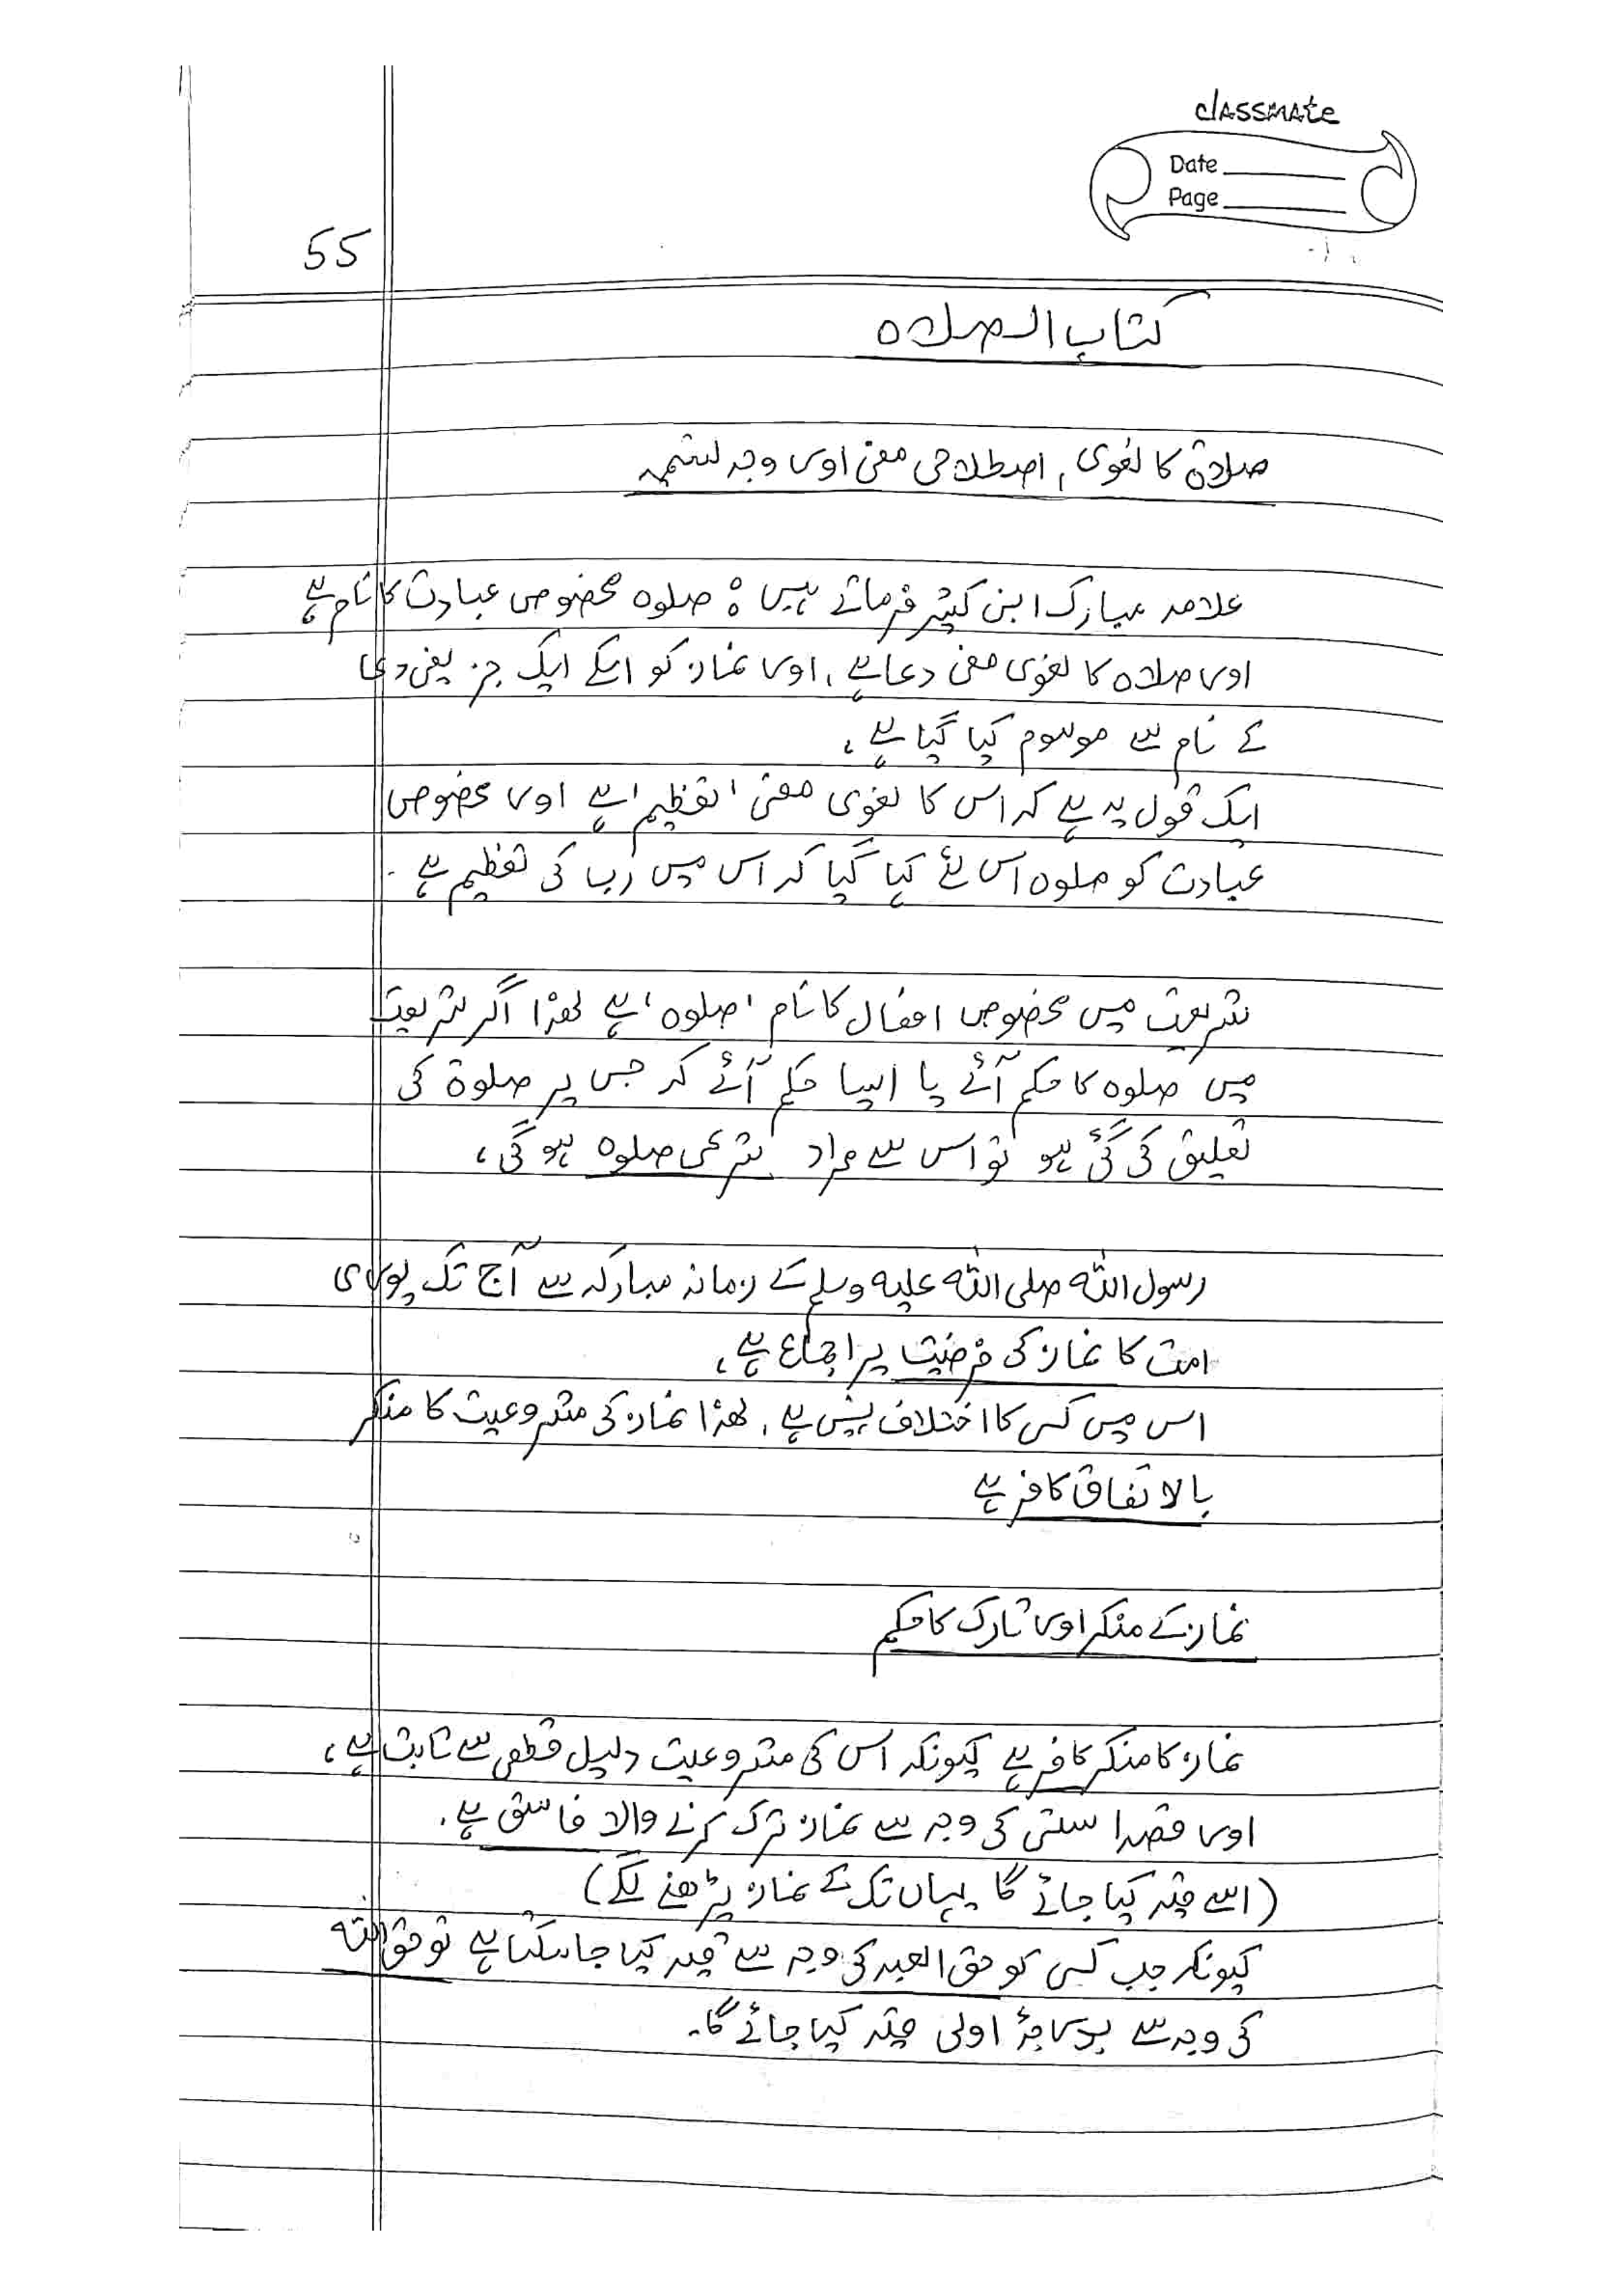 classmate
Date
Page
55
کتاب الصلاه
صلاۃ کا لغوی، اصطلاحی معنی اور وجہ تسمیہ
علامہ مبارک ابن کثیر فرماتے ہیں : صلوہ مخصوص عبادت کا نام ہے
اور صلاہ کا لغوی معنی دعا ہے، اور نماز کو اسکے ایک جز یعنی دعا
کے نام سے موسوم کیا گیا ہے،
ایک قول یہ ہے کہ اس کا لغوی معنی 'تعظیم' ہے اور مخصوص
عبادت کو صلوہ اس لئے کہا گیا کہ اس میں رب کی تعظیم ہے۔
شریعت میں مخصوص افعال کا نام 'صلوہ' ہے لھذا اگر شریعت
میں صلوہ کا حکم آئے یا ایسا حکم آئے کہ جس پر صلوۃ کی
تعلیق کی گئی ہو تو اس سے مراد شرعی صلوہ ہوگی،
رسول اللہ صلی اللہ علیہ وسلم کے زمانہ مبارکہ سے آج تک پوری
امت کا نماز کی فرضیت پر اجماع ہے،
اس میں کسی کا اختلاف نہیں ہے، لھذا نماز کی مشروعیت کا منکر
بالاتفاق کافر ہے
نماز کے منکر اور تارک کا حکم
نماز کا منکر کافر ہے کیونکہ اس کی مشروعیت دلیل قطعی سے ثابت ہے،
اور قصدا سستی کی وجہ سے نماز ترک کرنے والا فاسق ہے۔
(اسے قید کیا جائے گا یہاں تک کے نماز پڑھنے لگے)
کیونکہ جب کسی کو حق العبد کی وجہ سے قید کیا جاسکتا ہے تو حق اللہ
کی وجہ سے بدرجۂ اولی قید کیا جائے گا۔